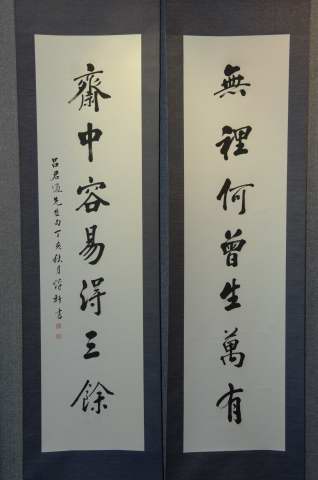 無裡何曾生萬有
齋中容易得三餘
呂君愷先生句丁亥秋月 書